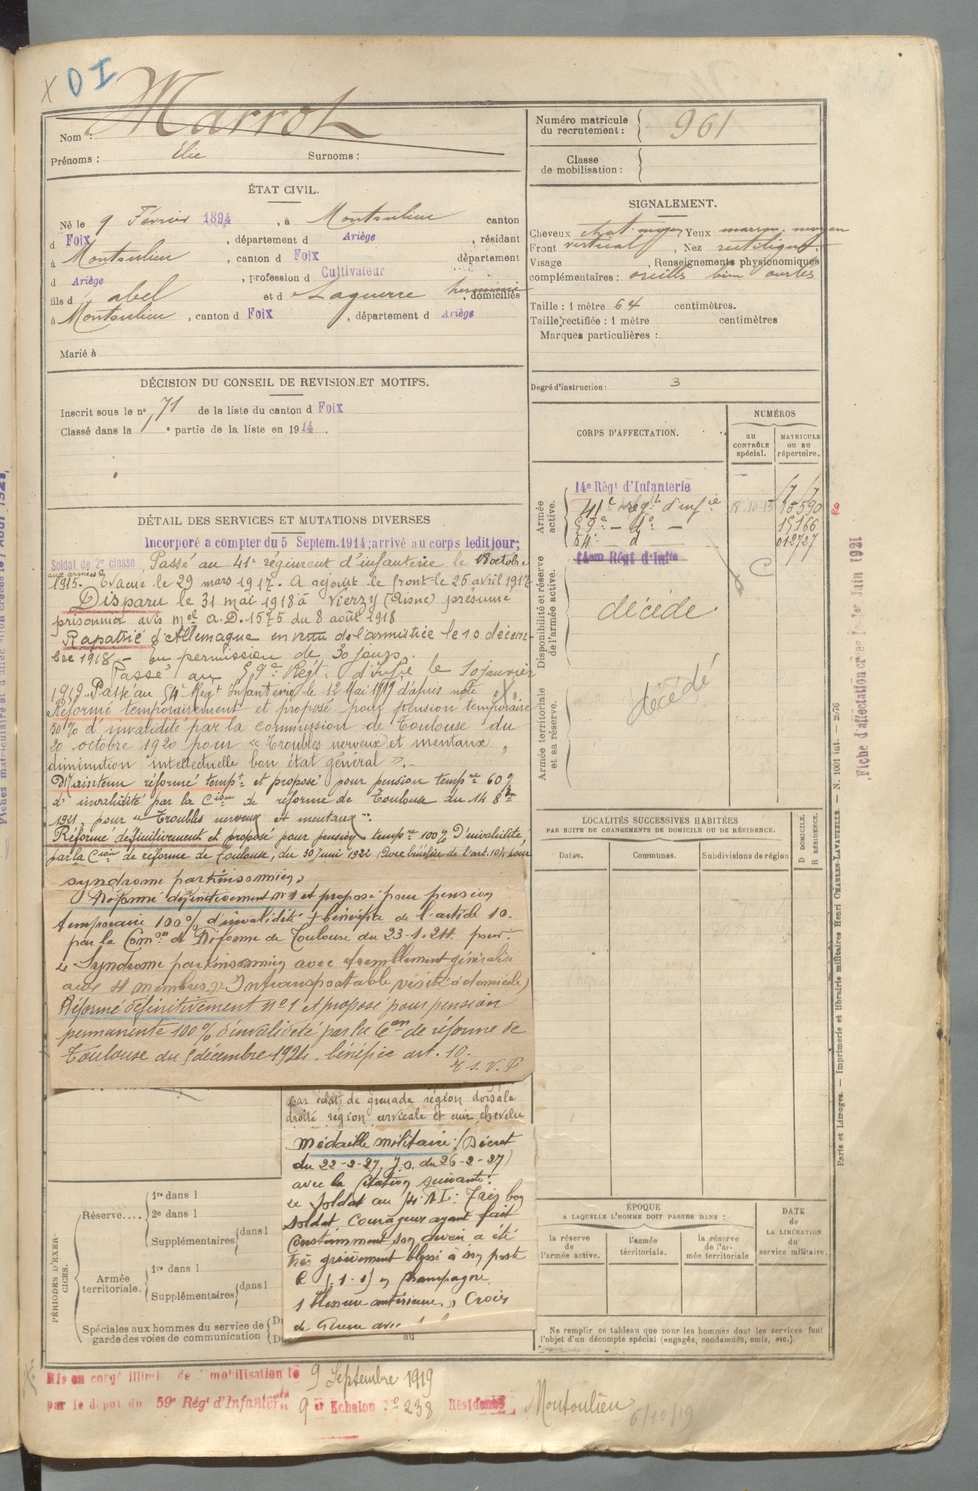 X DI
Nom : Marrot
Prénoms : Elie Surnoms :
Numéro matricule
du recrutement : 961
Classe
de mobilisation :
ÉTAT CIVIL.
Né le 9 Février 1894, à Montoulieu canton
d Foix, département d Ariège, résidant
à Montoulieu, canton d Foix département
d Ariège, profession d Cultivateur
fils d abel et d Laguerre herminie, domiciliés
à Montoulieu, canton d Foix, département d Ariège
Marié à
SIGNALEMENT.
Cheveux chat. moyen, Yeux marron moyen
Front vertical, Nez rectiligne
Visage , Renseignements physionomiques
complémentaires : oreilles bien ourlées
Taille : 1 mètre 64 centimètres.
Taille rectifiée : 1 mètre centimètres
Marques particulières :
Degré d'instruction : 3
DÉCISION DU CONSEIL DE REVISION ET MOTIFS.
Inscrit sous le n° 71 de la liste du canton d Foix
Classé dans la 1e partie de la liste en 1914.
DÉTAIL DES SERVICES ET MUTATIONS DIVERSES
Incorporé a compter du 5 Septem. 1914; arrivé au corps ledit jour;
Soldat de 2e classe Passé au 41e régiment d'infanterie le 18 octobre
aux armées
1915. Evacué le 29 mars 1917. A rejoint le front le 26 avril 1917
Disparu le 31 mai 1918 à Vierzy (Aisne) présumé
prisonnier avis mel A.D. 1575 du 8 août 1918
Rapatrié d'Allemagne en vertu de l'armistice le 10 décem-
bre 1918 – En permission de 30 jours.
Passé au 59e Régt d'Infie le 10 janvier
1919. Passé au 54e Régt Infanterie le 12 Mai 1919 d'après note
Réformé temporairement et proposé pour pension temporaire
30% d'invalidité par la commission de Toulouse du
20 octobre 1920 pour « Troubles nerveux et mentaux,
diminution intellectuelle bon état général ».
Maintenu réformé tempt et proposé pour pension tempre 60%
d'invalidité par la Cion de réforme de Toulouse du 14 8bre
1921, pour « Troubles nerveux et mentaux »
Réformé définitivement et proposé pour pension tempre 100% d'invalidité
par la Cion de réforme de Toulouse, du 30 juin 1922 (avec bénéfice de l'art. 10) pour
syndrome parkinsonnien
Réformé définitivement n° 1 et proposé pour pension
temporaire 100% d'invalidité + bénéfice de l'article 10.
par la Comon de Réforme de Toulouse du 23-1-24 pour
« Syndrome parkinsonnien avec tremblement généralisé
aux 4 membres » (Intransportable, visité à domicile)
Réformé définitivement n° 1 et proposé pour pension
permanente 100% d'invalidité par la Com de réforme de
Toulouse du 5 décembre 1924. bénéfice art. 10.
T.S.V.P
par éclat de grenade région dorsale
droite région cervicale et cuir chevelu
Médaille militaire: (Décret
du 22-2-27, J.O. du 26-2-27)
avec la citation suivante:
« Soldat au 14e R.I: Très bon
Soldat, courageux ayant fait
constamment son devoir a été
très grièvement blessé à son poste
en Champagne
1 blessure antérieure » Croix
de Guerre avec
CORPS D'AFFECTATION.
NUMÉROS
AU CONTRÔLE spécial.
MATRICULE OU AU répertoire.
Armée active.
14e Régt d'Infanterie
41e Régt d'infie 18.10.15 18590
59e – do – 15166
54e – d 012727
14em Régt d'Infie
Disponibilité et réserve de l'armée active.
C
décédé
Armée territoriale et sa réserve.
décédé
Fiche d'affectation créée le 1er Juin 1921
LOCALITÉS SUCCESSIVES HABITÉES
PAR SUITE DE CHANGEMENTS DE DOMICILE OU DE RÉSIDENCE.
Dates. Communes. Subdivisions de région D DOMICILE. R RÉSIDENCE.
PÉRIODES D'EXERCICES.
Réserve....
1re dans l
2e dans l
Supplémentaires dans l
Armée territoriale.
1re dans l
Supplémentaires dans l
Spéciales aux hommes du service de
garde des voies de communication
au
ÉPOQUE
A LAQUELLE L'HOMME DOIT PASSER DANS :
la réserve de l'armée active.
l'armée térritoriale.
la réserve de l'armée territoriale
DATE de LA LIBÉRATION du service militaire.
Ne remplir ce tableau que pour les hommes dont les services font
l'objet d'un décompte spécial (engagés, condamnés, omis, etc.).
Paris et Limoges. — Imprimerie et librairie militaires Henri CHARLES-LAVAUZELLE.
Mis en congé illimité de démobilisation le 9 Septembre 1919
par le dépôt du 59e Régt d'Infanterie 9e Echelon N° 238 Résidence Montoulieu
6/10/19